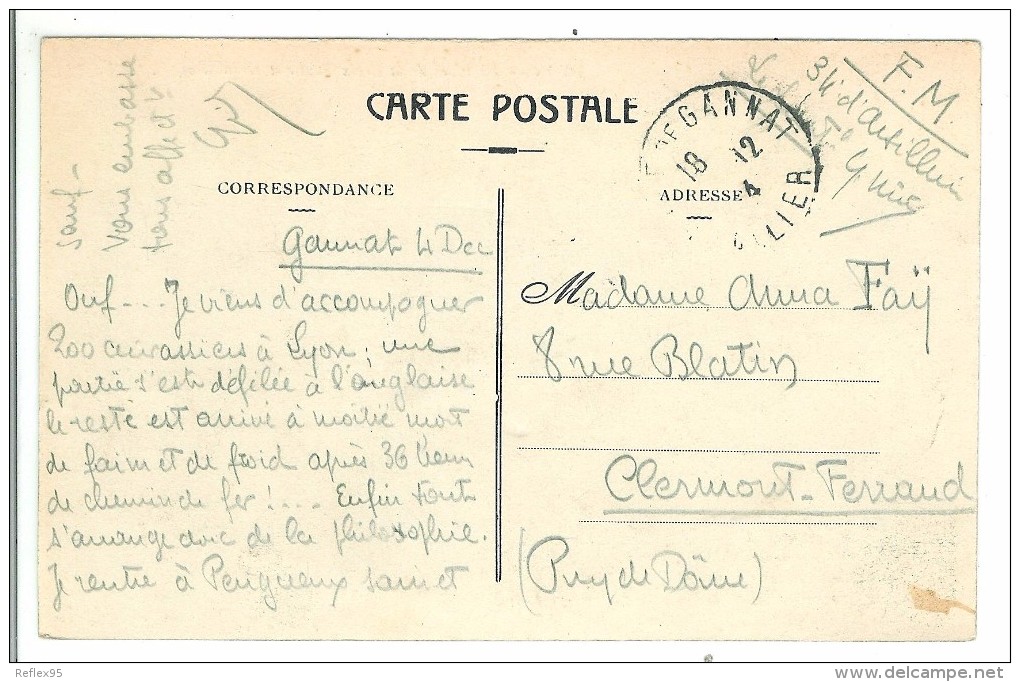 CARTE POSTALE
CORRESPONDANCE
Gannat 4 Dec
Ouf... Je viens d'accompagner
200 cuirassiers à Lyon ; une
partie s'est défilée à l'anglaise
le reste est arrivé à moitié mort
de faim et de froid après 36 heures
de chemin de fer !... Enfin tout
s'arrange avec de la philosophie.
Je rentre à Perigueux sain et
sauf -
Vous embrasse
tous affect t
ADRESSE
F. M.
34e d'artillerie
GANNAT
18 12
4
ALLIER
Madame Anna Faÿ
8 rue Blatin
Clermont-Ferrand
(Puy de Dôme)
Reflex95
www.delcampe.net